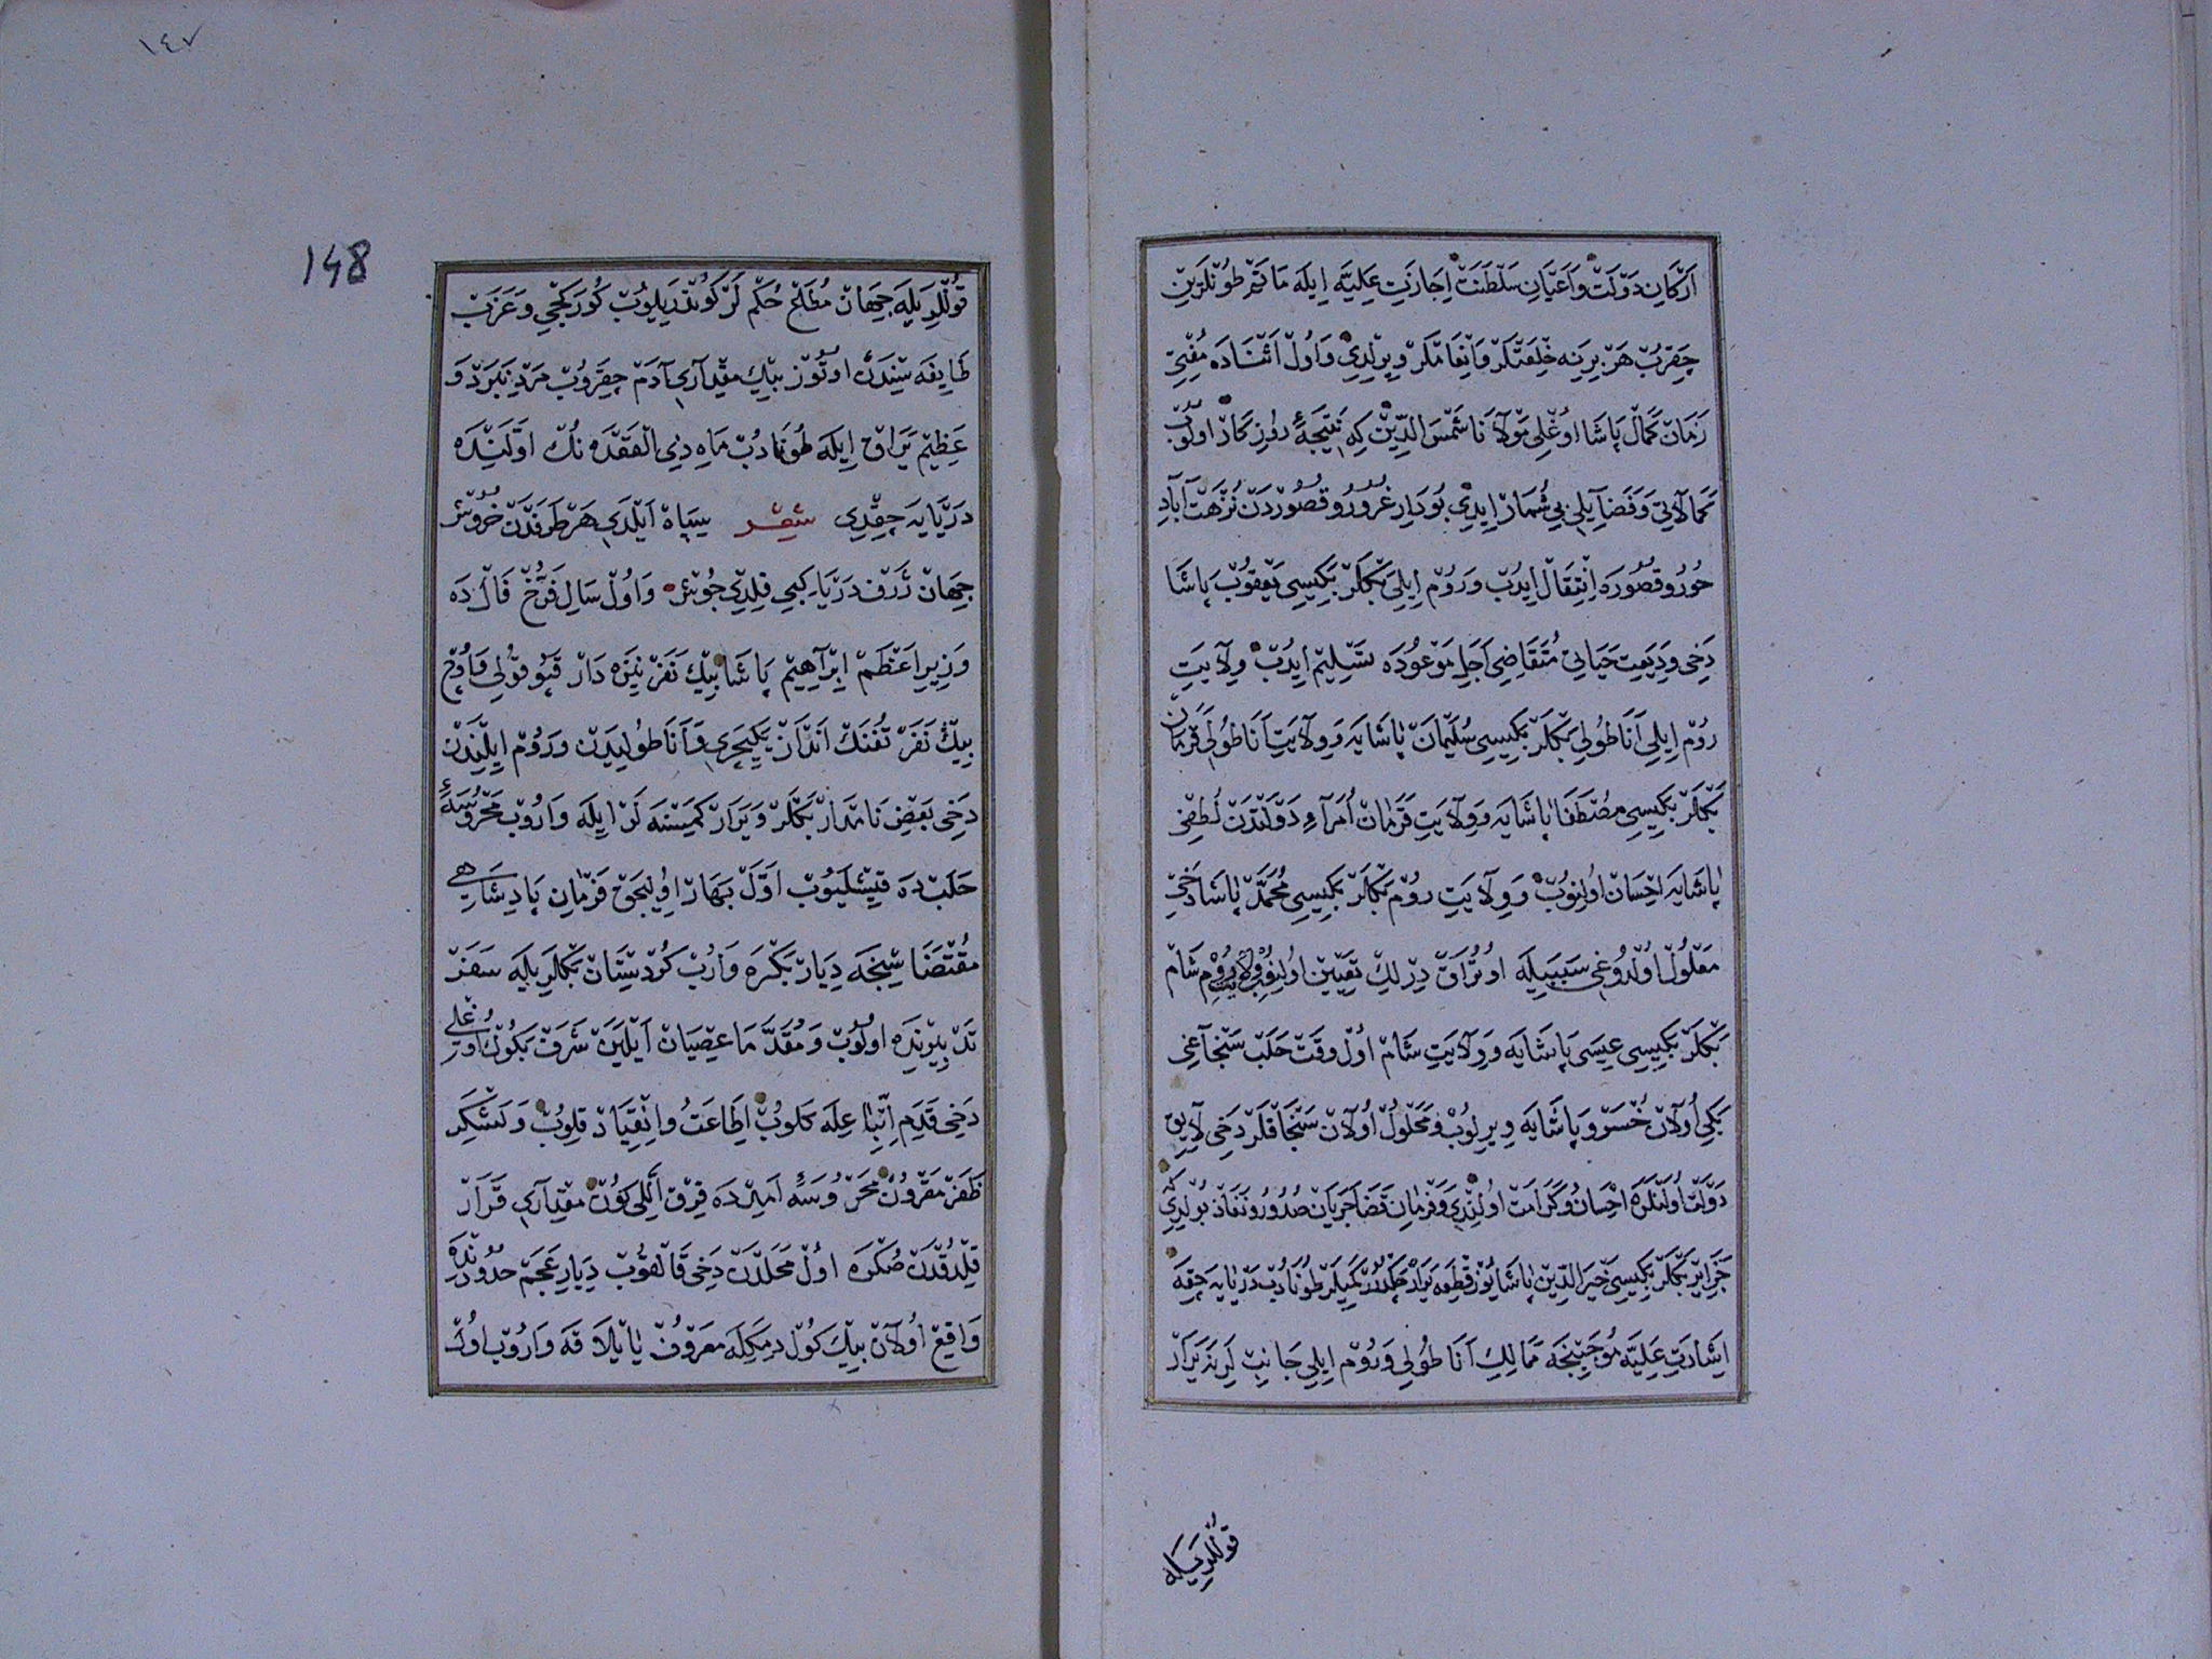 اركان دولت و اعيان سلطنت اجازت عليه ايله ماتم طونلرين
چقرب هر برينه خلعتلر و انعاملر ويرلدى و اول اثناده مفتئ
زمان كمال پاشا اوغلى مولانا شمس الدين كه نتيجهٔ روزكار اولوب
كمالاتى و فضايلى بى شمار ايدى بو دار غرور و قصوردن نزهت آباد
حور و قصوره انتقال ايدب و روم ايلى بكلر بكيسى يعقوب پاشا
دخى وديعت حياتى متقاضى اجل موعوده تسليم ايدب ولايت
روم ايلى اناطولى بكلر بكيسى سليمان پاشايه و ولايت اناطولى قرمان
بكلر بكيسى مصطفا پاشايه و ولايت قرمان امراء دولتدن لطفى
پاشايه احسان اولنوب و ولايت روم بكلر بكيسى محمد پاشا دخى
معلول اولدوغى سببيله اوتراق درلك تعيين اولنوب ولايت روم شام
بكلر بكيسى عيسى پاشايه و ولايت شام اول وقت حلب سنجاغى
بكى اولان خسرو پاشايه ويرلوب و محلول اولان سنجاقلر دخى لايق
دولت اولنلره احسان و كرامت اولندى و فرمان قضا جريان صدور و نفاذ بولدى كه
جزاير بكلر بكيسى خير الدين پاشا يوز قطعه كميلر طونادب دريايه چقه
اشارت عليه موجبنجه ممالك اناطولى و روم ايلى جانبلرينه يرار
قوللريله
١٤٧
148
قوللريله جهان مطاع حكملر كوندريلوب كوركجى و عزب
طايفه سندن اوتوز بيك مقدارى آدم چقروب مرد نبرد و
عظيم يراق ايله طونادب ماه ذى القعده نك اوّلنده
دريايه چقدى شعر سپاه ايلدى هر طرفدن خروش
جهان ژرف دريا كبى قلدى جوش و اول سال فرّخ فالده
وزير اعظم ابراهيم پاشا بيك نفر نيزه دار قپو قولى و اوچ
بيك نفر تفنك انداز يكيچرى و اناطوليدن و روم ايلندن
دخى بعض نامدار بكلر و يرار كمسنه لر ايله واروب محروسهٔ
حلبده قيشليوب اوّل بهار اوليجق فرمان پادشاهى
مقتضا سنجه ديار بكره وارب كردستان بكلريله سفر
تدبيرنده اولوب و مقدّما عصيان ايلين شرف بكوك اوغلى
دخى قدم اتباعله كلوب اطاعت و انقياد قلوب و لشكر
ظفر مقرون محروسهٔ امدده قرق اللى كون مقدارى قرار
قلدقدن صكره اول محلدن دخى قالقوب ديار عجم حدودنده
واقع اولان بيك كول ديمكله معروف يايلاقه واروب اول